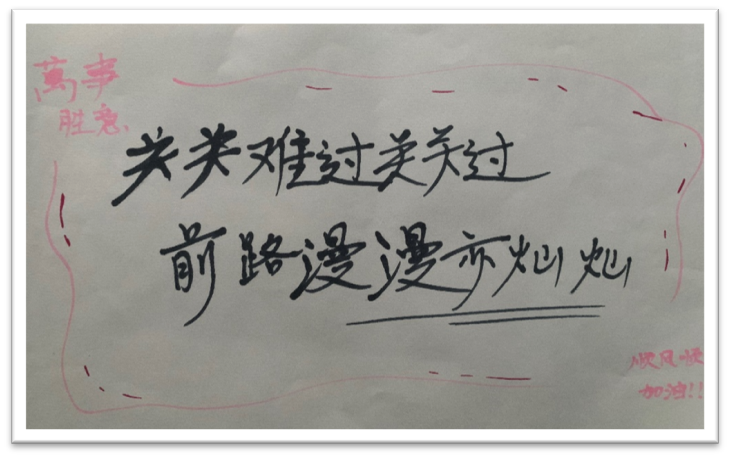 萬事
胜意、
关关难过关关过
前路漫漫亦灿灿
顺风顺
加油!!